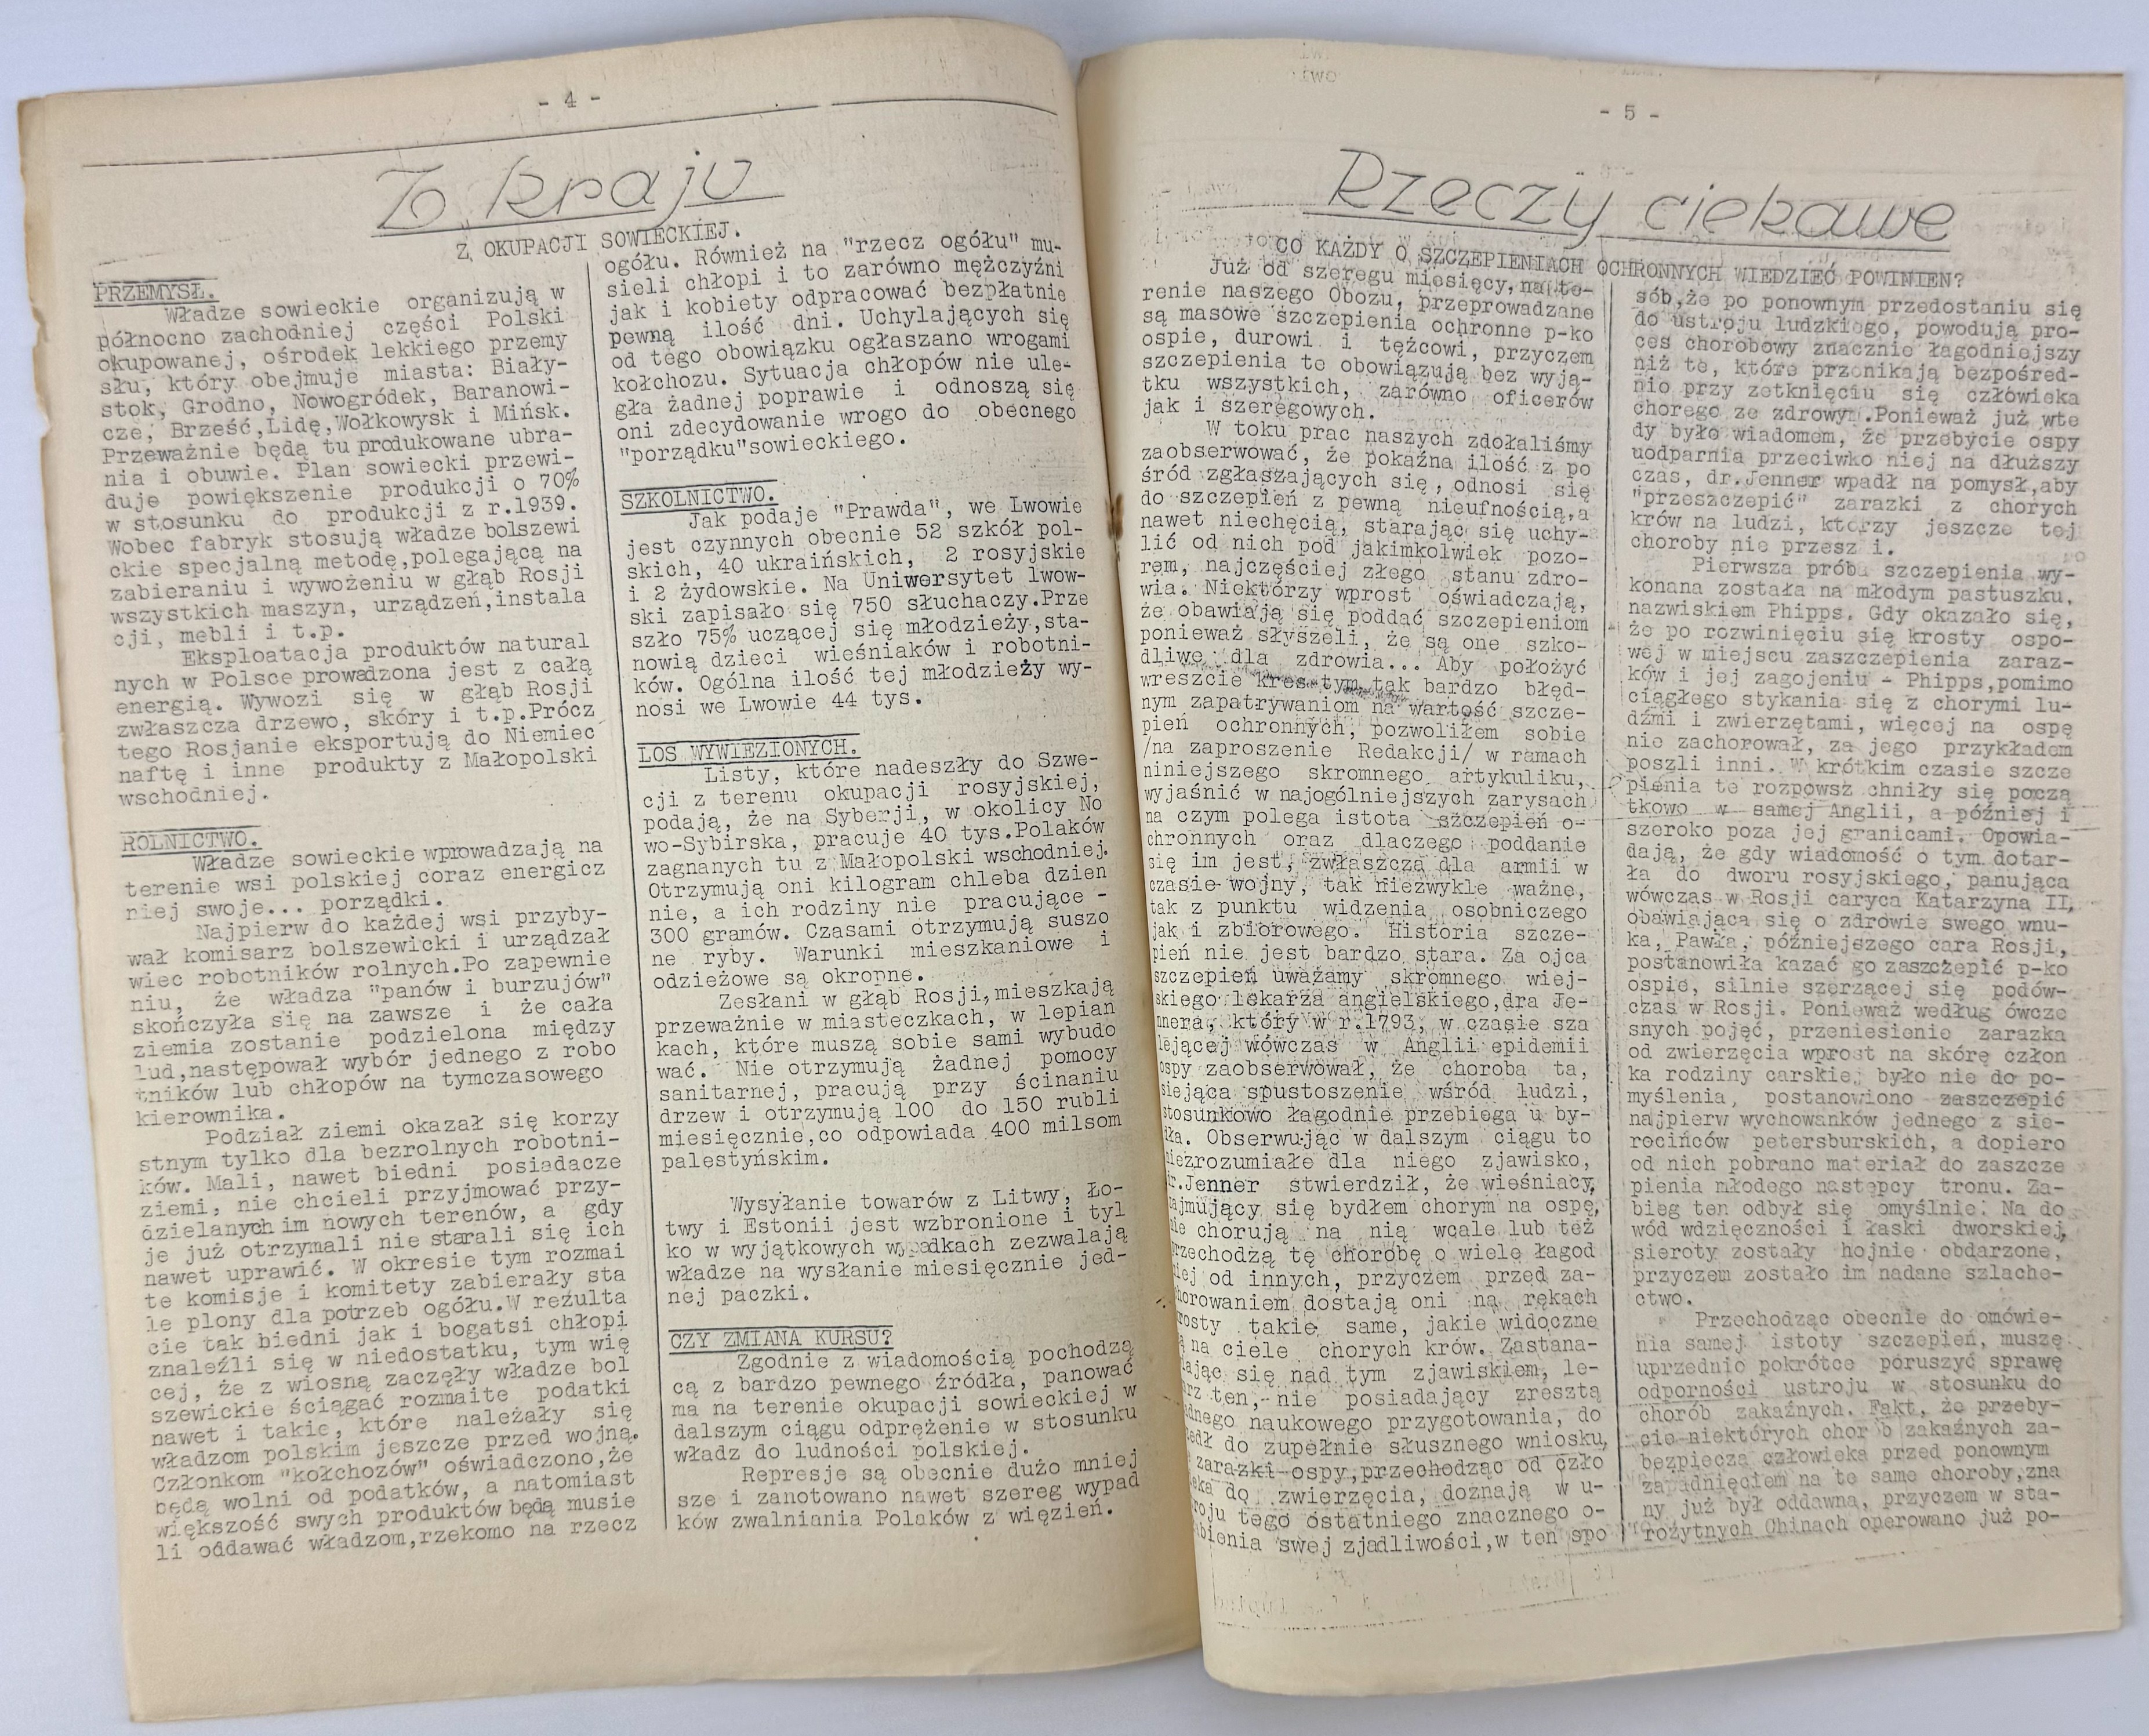 - 4 -
Z kraju
Z OKUPACJI SOWIECKIEJ.
PRZEMYSŁ.
Władze sowieckie organizują w
północno zachodniej części Polski
okupowanej, ośrodek lekkiego przemy
słu, który obejmuje miasta: Biały-
stok, Grodno, Nowogródek, Baranowi-
cze, Brześć,Lidę,Wołkowysk i Mińsk.
Przeważnie będą tu produkowane ubra-
nia i obuwie. Plan sowiecki przewi-
duje powiększenie produkcji o 70%
w stosunku do produkcji z r.1939.
Wobec fabryk stosują władze bolszewi
ckie specjalną metodę,polegającą na
zabieraniu i wywożeniu w głąb Rosji
wszystkich maszyn, urządzeń,instala
cji, mebli i t.p.
Eksploatacja produktów natural
nych w Polsce prowadzona jest z całą
energią. Wywozi się w głąb Rosji
zwłaszcza drzewo, skóry i t.p.Prócz
tego Rosjanie eksportują do Niemiec
naftę i inne produkty z Małopolski
wschodniej.
ROLNICTWO.
Władze sowieckie wprowadzają na
terenie wsi polskiej coraz energicz
niej swoje... porządki.
Najpierw do każdej wsi przyby-
wał komisarz bolszewicki i urządzał
wiec robotników rolnych.Po zapewnie
niu, że władza "panów i burzujów"
skończyła się na zawsze i że cała
ziemia zostanie podzielona między
lud,następował wybór jednego z robo
tników lub chłopów na tymczasowego
kierownika.
Podział ziemi okazał się korzy
stnym tylko dla bezrolnych robotni-
ków. Mali, nawet biedni posiadacze
ziemi, nie chcieli przyjmować przy-
dzielanych im nowych terenów, a gdy
je już otrzymali nie starali się ich
nawet uprawić. W okresie tym rozmai
te komisje i komitety zabierały sta
le plony dla potrzeb ogółu.W rezulta
cie tak biedni jak i bogatsi chłopi
znaleźli się w niedostatku, tym wię
cej, że z wiosną zaczęły władze bol
szewickie ściągać rozmaite podatki
nawet i takie, które należały się
władzom polskim jeszcze przed wojną.
Członkom "kołchozów" oświadczono,że
będą wolni od podatków, a natomiast
większość swych produktów będą musie
li oddawać władzom,rzekomo na rzecz
ogółu. Również na "rzecz ogółu" mu-
sieli chłopi i to zarówno mężczyźni
jak i kobiety odpracować bezpłatnie
pewną ilość dni. Uchylających się
od tego obowiązku ogłaszano wrogami
kołchozu. Sytuacja chłopów nie ule-
gła żadnej poprawie i odnoszą się
oni zdecydowanie wrogo do obecnego
"porządku"sowieckiego.
SZKOLNICTWO.
Jak podaje "Prawda", we Lwowie
jest czynnych obecnie 52 szkół pol-
skich, 40 ukraińskich, 2 rosyjskie
i 2 żydowskie. Na Uniwersytet lwow-
ski zapisało się 750 słuchaczy.Prze
szło 75% uczącej się młodzieży,sta-
nowią dzieci wieśniaków i robotni-
ków. Ogólna ilość tej młodzieży wy-
nosi we Lwowie 44 tys.
LOS WYWIEZIONYCH.
Listy, które nadeszły do Szwe-
cji z terenu okupacji rosyjskiej,
podają, że na Syberji, w okolicy No
wo-Sybirska, pracuje 40 tys.Polaków
zagnanych tu z Małopolski wschodniej.
Otrzymują oni kilogram chleba dzien
nie, a ich rodziny nie pracujące -
300 gramów. Czasami otrzymują suszo
ne ryby. Warunki mieszkaniowe i
odzieżowe są okropne.
Zesłani w głąb Rosji,mieszkają
przeważnie w miasteczkach, w lepian
kach, które muszą sobie sami wybudo
wać. Nie otrzymują żadnej pomocy
sanitarnej, pracują przy ścinaniu
drzew i otrzymują 100 do 150 rubli
miesięcznie,co odpowiada 400 milsom
palestyńskim.
Wysyłanie towarów z Litwy, Ło-
twy i Estonii jest wzbronione i tyl
ko w wyjątkowych wypadkach zezwalają
władze na wysłanie miesięcznie jed-
nej paczki.
CZY ZMIANA KURSU?
Zgodnie z wiadomością pochodzą
cą z bardzo pewnego źródła, panować
ma na terenie okupacji sowieckiej w
dalszym ciągu odprężenie w stosunku
władz do ludności polskiej.
Represje są obecnie dużo mniej
sze i zanotowano nawet szereg wypad
ków zwalniania Polaków z więzień.
- 5 -
Rzeczy ciekawe
CO KAŻDY O SZCZEPIENIACH OCHRONNYCH WIEDZIEĆ POWINIEN?
Już od szeregu miesięcy,na te-
renie naszego Obozu, przeprowadzane
są masowe szczepienia ochronne p-ko
ospie, durowi i tężcowi, przyczem
szczepienia te obowiązują bez wyją-
tku wszystkich, zarówno oficerów
jak i szeregowych.
W toku prac naszych zdołaliśmy
zaobserwować, że pokaźna ilość z po
śród zgłaszających się, odnosi się
do szczepień z pewną nieufnością,a
nawet niechęcią, starając się uchy-
lić od nich pod jakimkolwiek pozo-
rem, najczęściej złego stanu zdro-
wia. Niektórzy wprost oświadczają,
że obawiają się poddać szczepieniom
ponieważ słyszeli, że są one szko-
dliwe dla zdrowia... Aby położyć
wreszcie kres tym tak bardzo błęd-
nym zapatrywaniom na wartość szcze-
pień ochronnych, pozwoliłem sobie
/na zaproszenie Redakcji/ w ramach
niniejszego skromnego artykuliku,
wyjaśnić w najogólniejszych zarysach
na czym polega istota szczepień o-
chronnych oraz dlaczego poddanie
się im jest, zwłaszcza dla armii w
czasie wojny, tak niezwykle ważne,
tak z punktu widzenia osobniczego
jak i zbiorowego. Historia szcze-
pień nie jest bardzo stara. Za ojca
szczepień uważamy skromnego wiej-
skiego lekarza angielskiego,dra Je-
nnera, który w r.1793, w czasie sza
lejącej wówczas w Anglii epidemii
ospy zaobserwował, że choroba ta,
siejąca spustoszenie wśród ludzi,
stosunkowo łagodnie przebiega u by-
dła. Obserwując w dalszym ciągu to
niezrozumiałe dla niego zjawisko,
r.Jenner stwierdził, że wieśniacy,
ajmujący się bydłem chorym na ospę,
ie chorują na nią wcale lub też
rzechodzą tę chorobę o wiele łagod
iej od innych, przyczem przed za-
horowaniem dostają oni na rękach
rosty takie same, jakie widoczne
ą na ciele chorych krów. Zastana-
iając się nad tym zjawiskiem, le-
rz ten, nie posiadający zresztą
dnego naukowego przygotowania, do
edł do zupełnie słusznego wniosku,
zarazki ospy,przechodząc od czło
eka do zwierzęcia, doznają w u-
roju tego ostatniego znacznego o-
bienia swej zjadliwości,w ten spo
sób,że po ponownym przedostaniu się
do ustroju ludzkiego, powodują pro-
ces chorobowy znacznie łagodniejszy
niż te, które przenikają bezpośred-
nio przy zetknięciu się człowieka
chorego ze zdrowym.Ponieważ już wte
dy było wiadomem, że przebycie ospy
uodparnia przeciwko niej na dłuższy
czas, dr.Jenner wpadł na pomysł,aby
"przeszczepić" zarazki z chorych
krów na ludzi, którzy jeszcze tej
choroby nie przesz i.
Pierwsza próba szczepienia wy-
konana została na młodym pastuszku,
nazwiskiem Phipps. Gdy okazało się,
że po rozwinięciu się krosty ospo-
wej w miejscu zaszczepienia zaraz-
ków i jej zagojeniu - Phipps,pomimo
ciągłego stykania się z chorymi lu-
dźmi i zwierzętami, więcej na ospę
nie zachorował, za jego przykładem
poszli inni. W krótkim czasie szcze
pienia te rozpowsz chniły się począ
tkowo w samej Anglii, a później i
szeroko poza jej granicami. Opowia-
dają, że gdy wiadomość o tym dotar-
ła do dworu rosyjskiego, panująca
wówczas w Rosji caryca Katarzyna II,
obawiająca się o zdrowie swego wnu-
ka, Pawła, późniejszego cara Rosji,
postanowiła kazać go zaszczepić p-ko
ospie, silnie szerzącej się podów-
czas w Rosji. Ponieważ według ówcze
snych pojęć, przeniesienie zarazka
od zwierzęcia wprost na skórę człon
ka rodziny carskiej było nie do po-
myślenia, postanowiono zaszczepić
najpierw wychowanków jednego z sie-
rocińców petersburskich, a dopiero
od nich pobrano materiał do zaszcze
pienia młodego następcy tronu. Za-
bieg ten odbył się pomyślnie. Na do
wód wdzięczności i łaski dworskiej,
sieroty zostały hojnie obdarzone,
przyczem zostało im nadane szlache-
ctwo.
Przechodząc obecnie do omówie-
nia samej istoty szczepień, muszę
uprzednio pokrótce poruszyć sprawę
odporności ustroju w stosunku do
chorób zakaźnych. Fakt, że przeby-
cie niektórych chorób zakaźnych za-
bezpiecza człowieka przed ponownym
zapadnięciem na te same choroby,zna
ny już był oddawna, przyczem w sta-
rożytnych Chinach operowano już po-